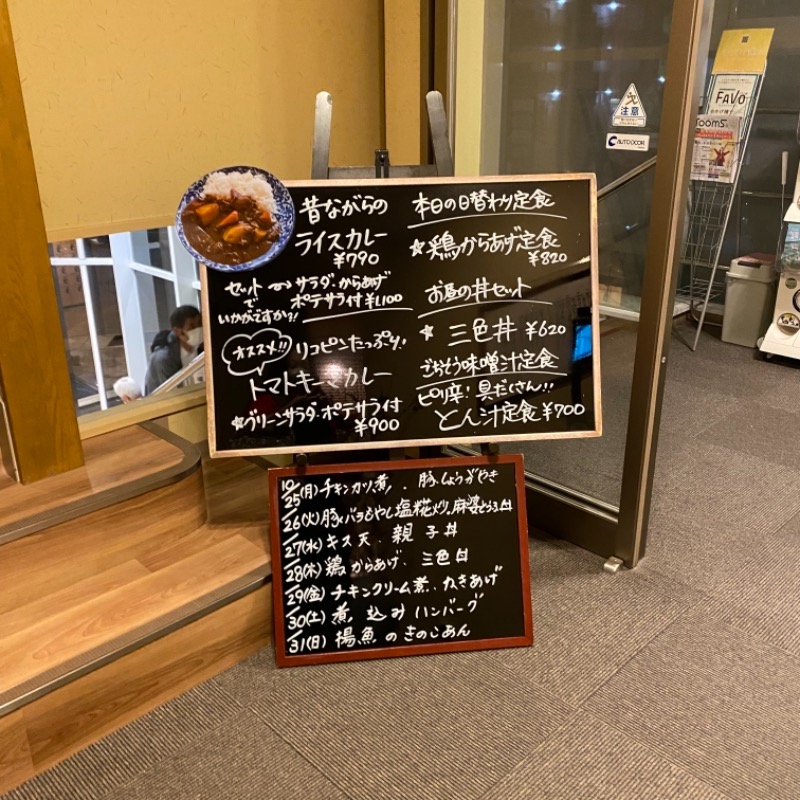 昔ながらの
ライスカレー
¥790
セットで サラダ、からあげ
ポテサラ付 ¥1,100
いかがですか?!
オススメ!! リコピンたっぷり!
トマトキーマカレー
☆グリーンサラダ・ポテサラ付
¥900
本日の日替わり定食
☆鶏からあげ定食
¥820
お昼の丼セット
☆ 三色丼 ¥620
ごちそう味噌汁定食
ピリ辛!具だくさん!!
とん汁定食 ¥700
10/25(月)チキンカツ煮、豚しょうがやき
/26(火)豚バラもやし塩糀炒、麻婆とうふ丼
/27(水)キス天、親子丼
/28(木)鶏からあげ、三色丼
/29(金)チキンクリーム煮、かきあげ
/30(土)煮込みハンバーグ
/31(日)揚魚のきのこあん
注意
AUTO DOOR
FAVO
roomS